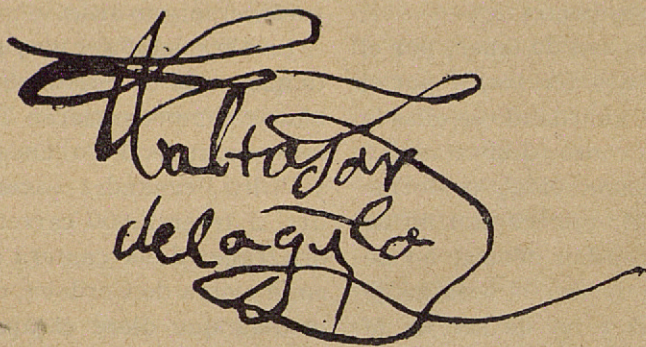 baltasar
del agila